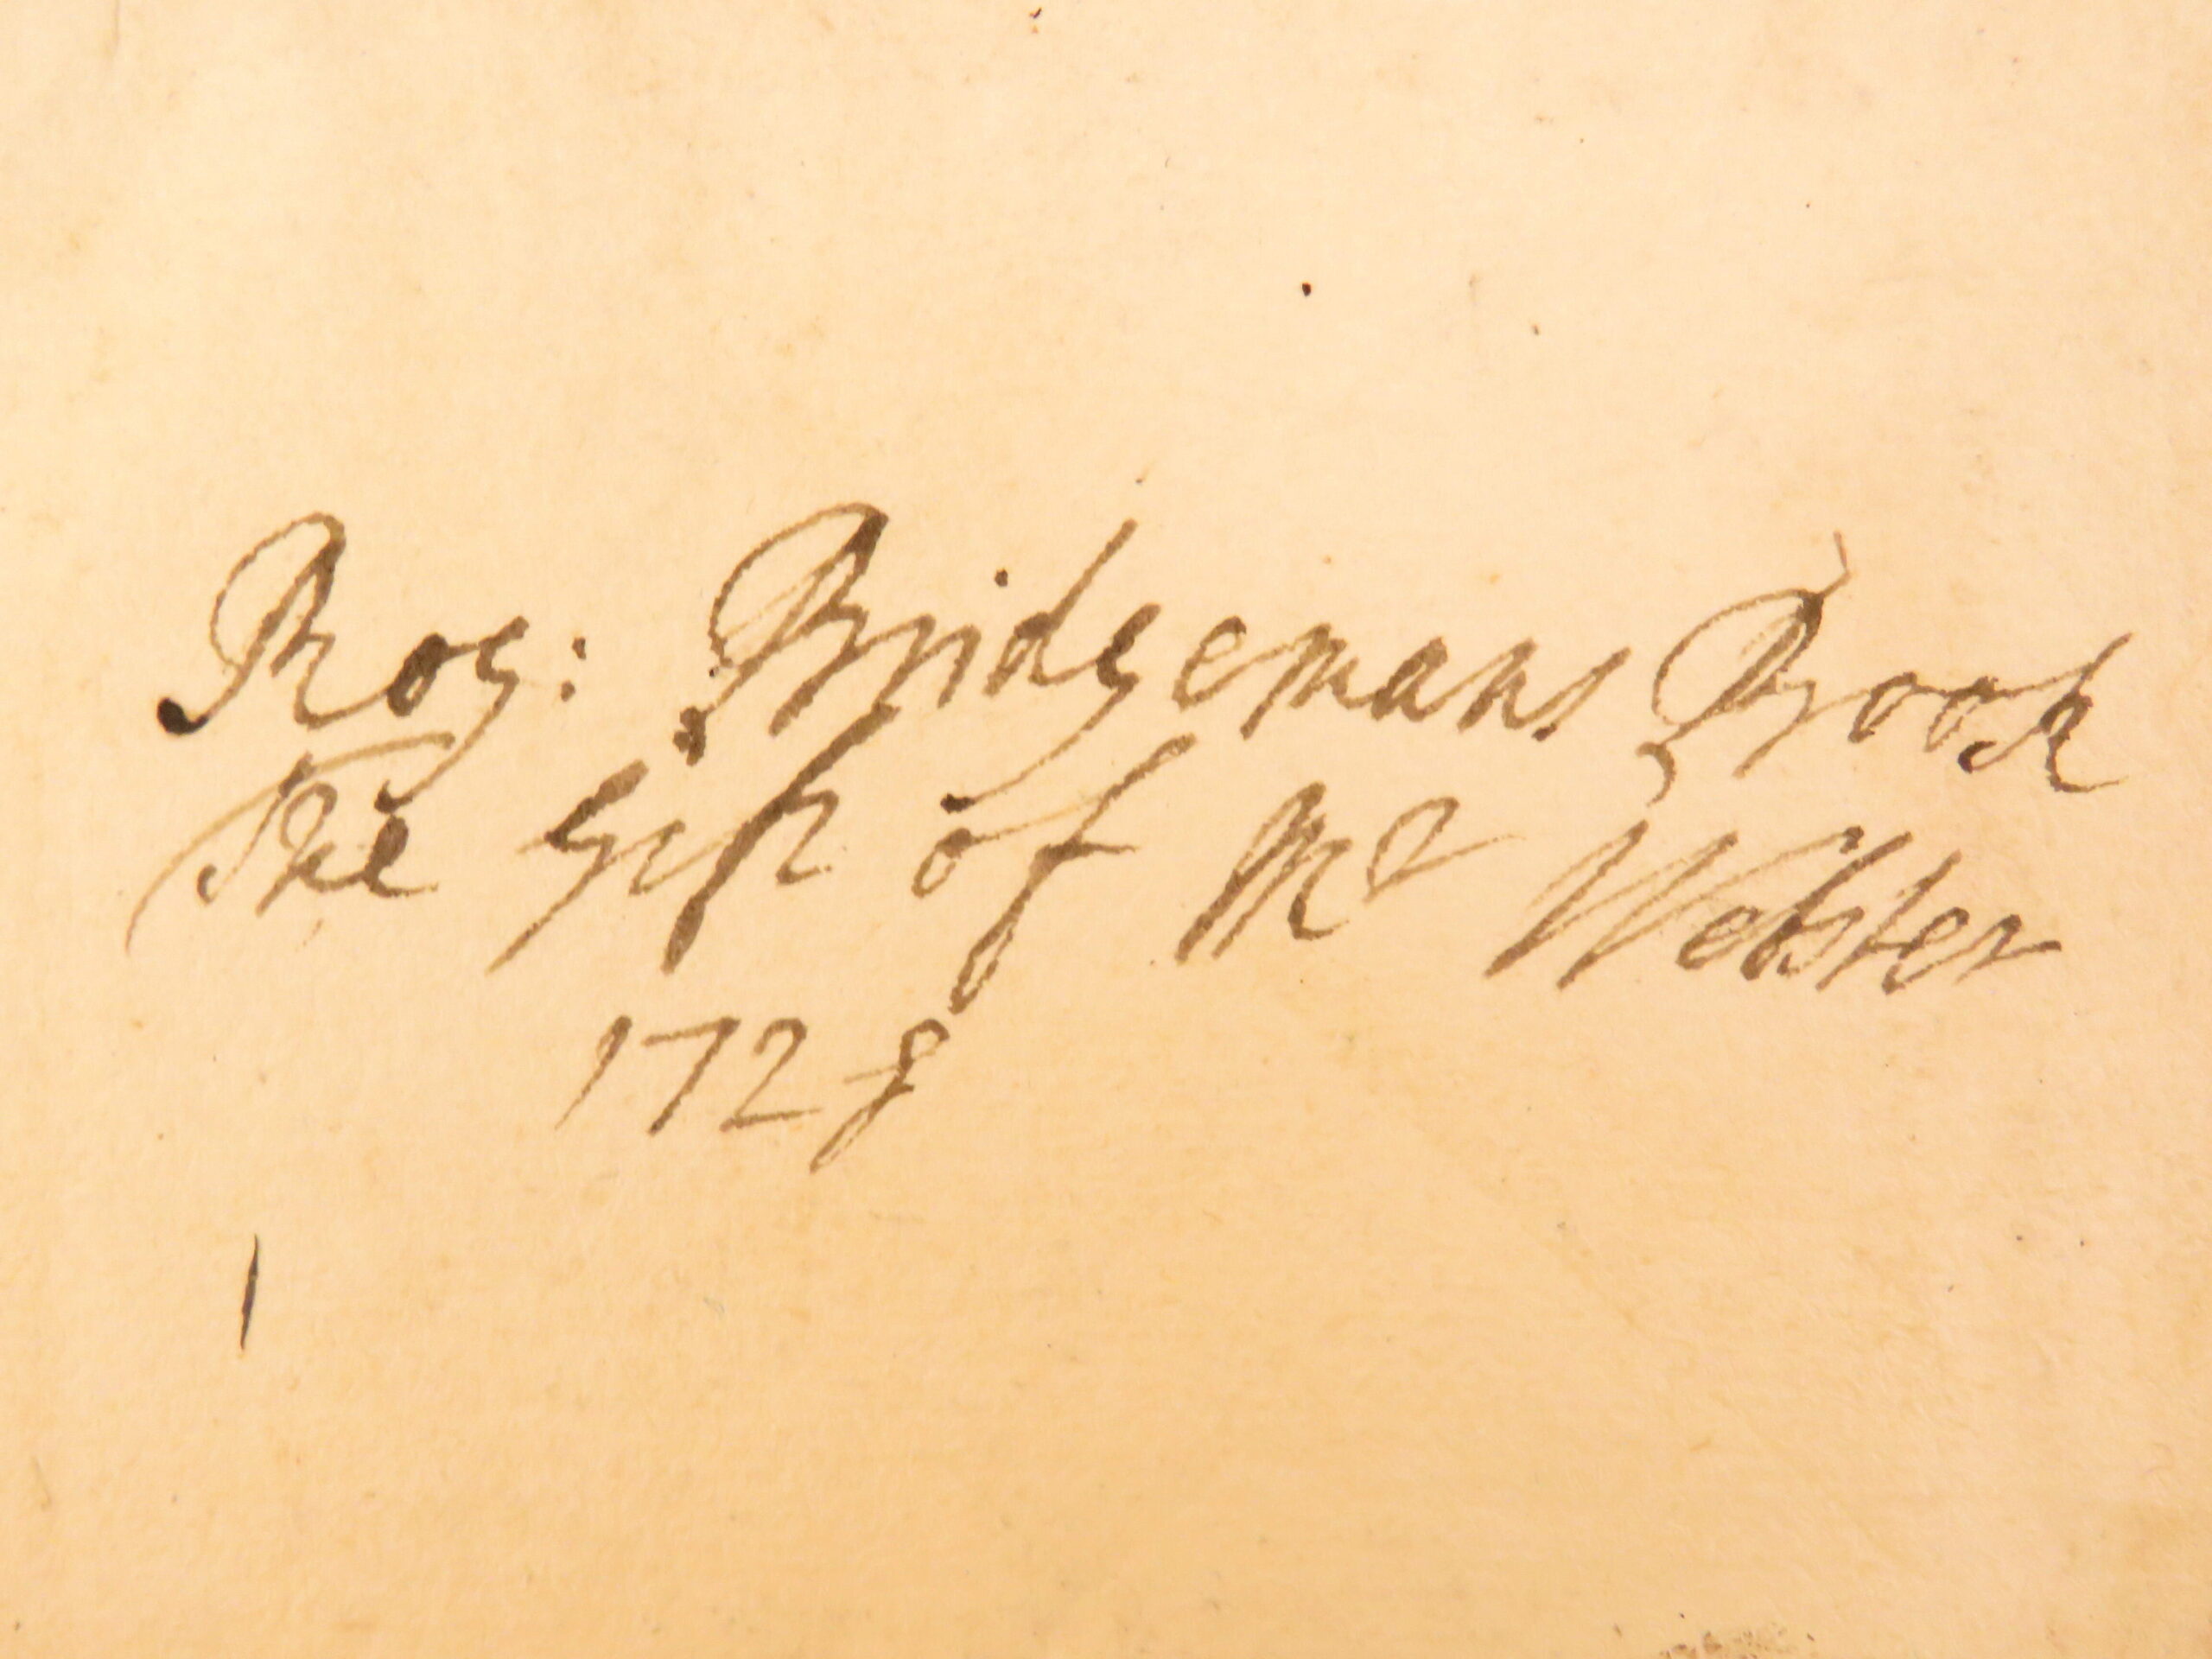 Rog: Bridgemans Book
The Gift of Mr Webster
1728